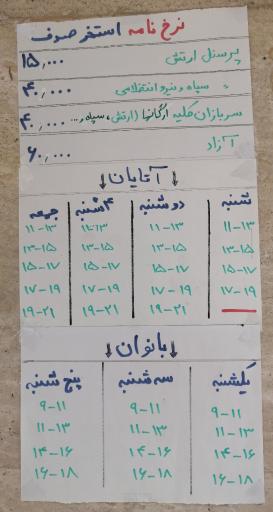 نرخ نامه استخر صدف
پرسنل ارتش ۱۵,۰۰۰
" سپاه و نیرو انتظامی ۴۰,۰۰۰
سربازان کلیه ارگانها (ارتش، سپاه و... ۴۰,۰۰۰
آزاد ۶۰,۰۰۰
↓ آقایان ↓
شنبه دوشنبه ۴شنبه جمعه
۱۱-۱۳ ۱۱-۱۳ ۱۱-۱۳ ۱۱-۱۳
۱۳-۱۵ ۱۳-۱۵ ۱۳-۱۵ ۱۳-۱۵
۱۵-۱۷ ۱۵-۱۷ ۱۵-۱۷ ۱۵-۱۷
۱۷-۱۹ ۱۷-۱۹ ۱۷-۱۹ ۱۷-۱۹
— ۱۹-۲۱ ۱۹-۲۱ ۱۹-۲۱
↓ بانوان ↓
یکشنبه سه شنبه پنج شنبه
۹-۱۱ ۹-۱۱ ۹-۱۱
۱۱-۱۳ ۱۱-۱۳ ۱۱-۱۳
۱۴-۱۶ ۱۴-۱۶ ۱۴-۱۶
۱۶-۱۸ ۱۶-۱۸ ۱۶-۱۸